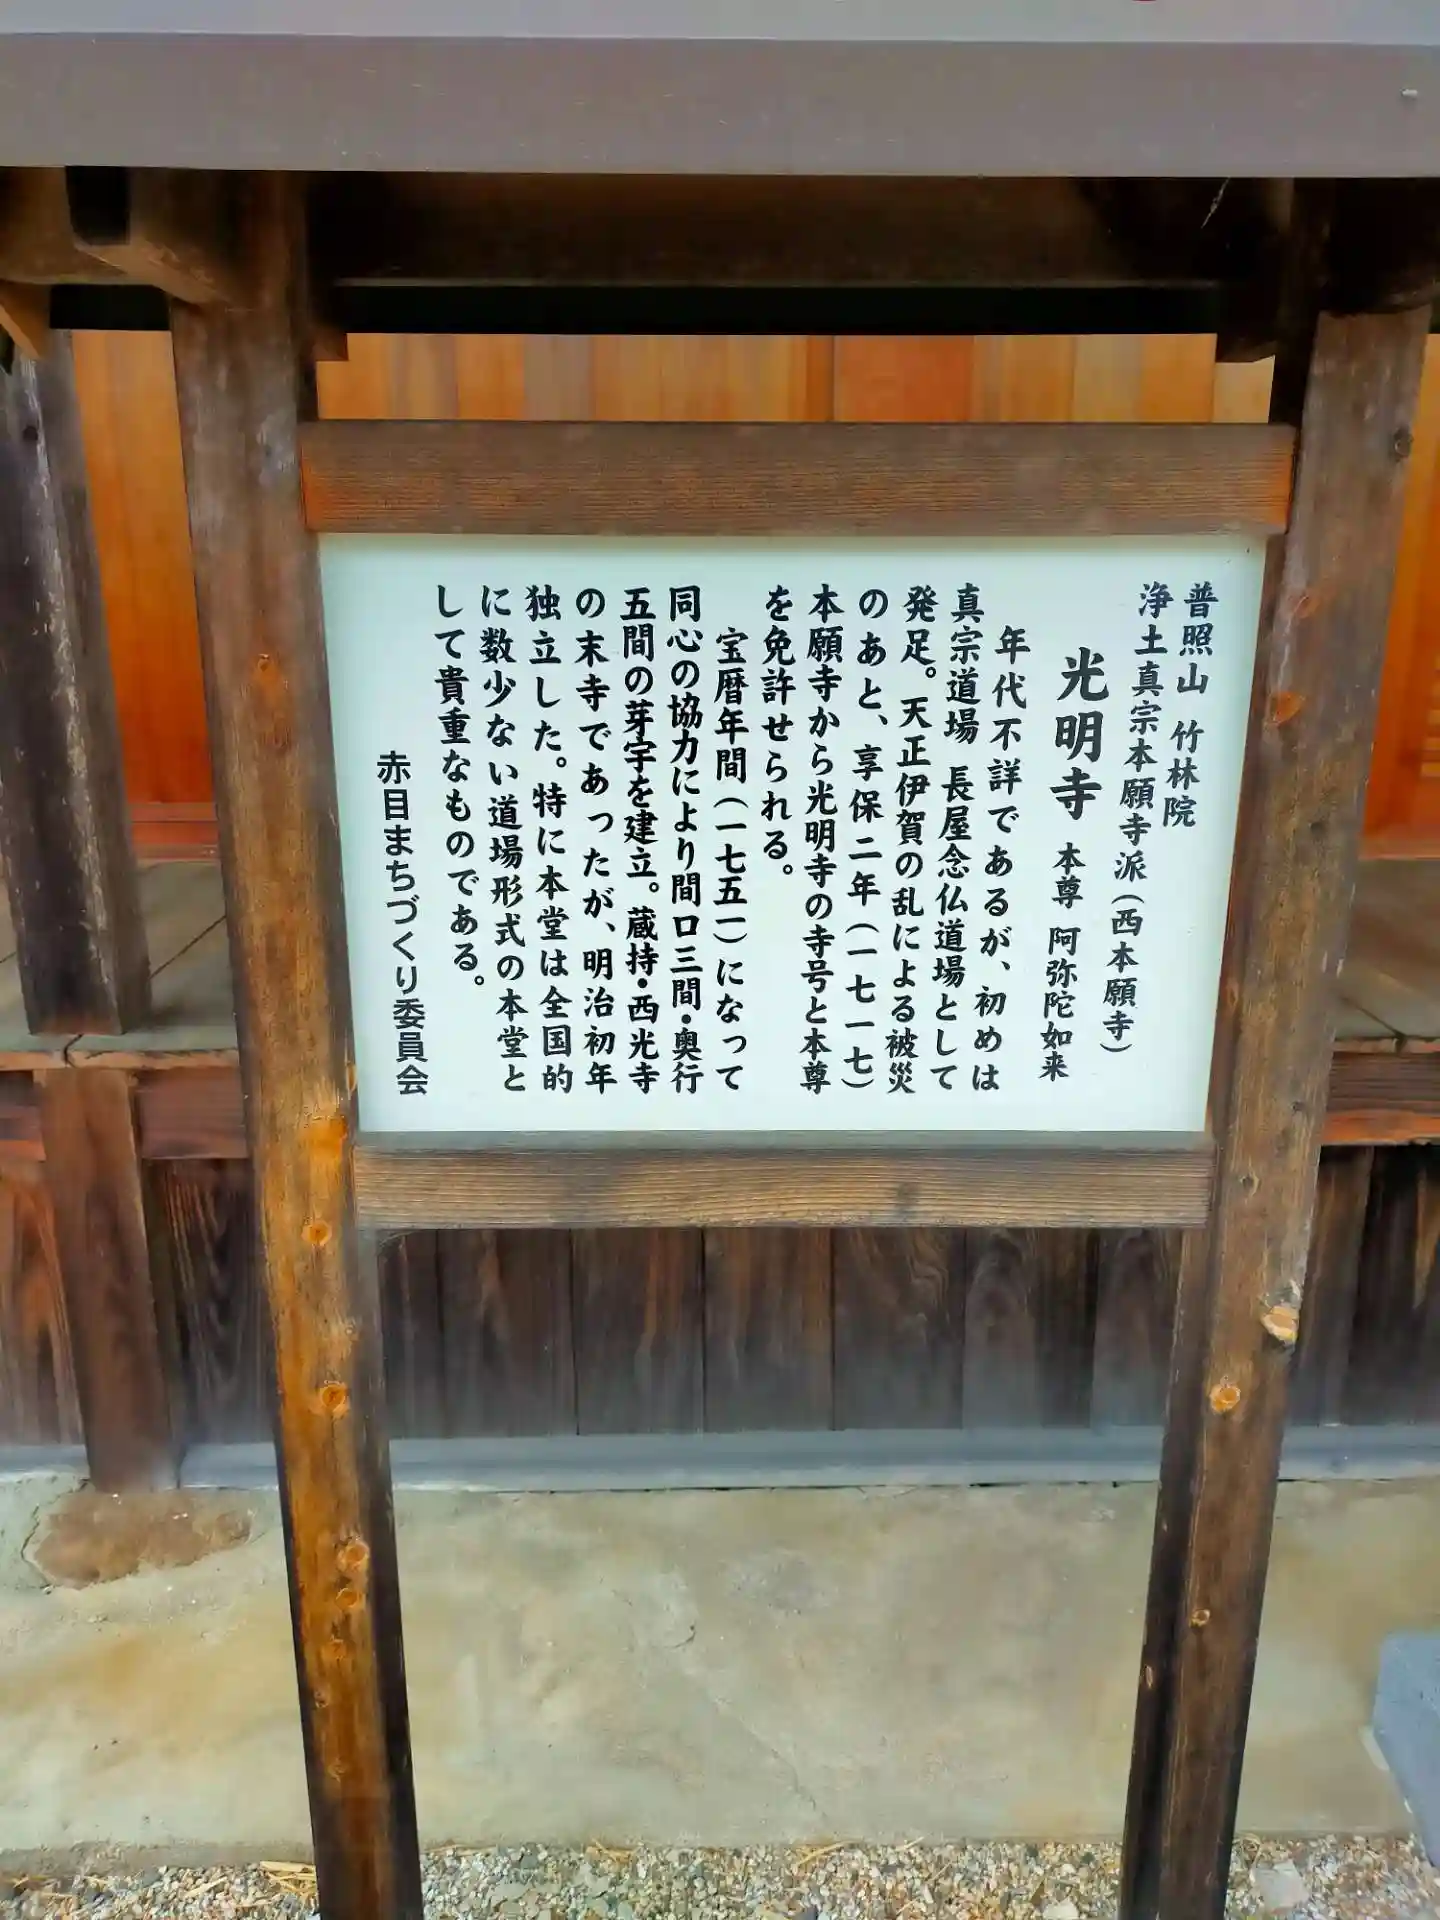 普照山 竹林院
浄土真宗本願寺派(西本願寺)
光明寺 本尊 阿弥陀如来
年代不詳であるが、初めは
真宗道場 長屋念仏道場として
発足。天正伊賀の乱による被災
のあと、享保二年(一七一七)
本願寺から光明寺の寺号と本尊
を免許せられる。
宝暦年間(一七五一)になって
同心の協力により間口三間・奥行
五間の芽宇を建立。蔵持・西光寺
の末寺であったが、明治初年
独立した。特に本堂は全国的
に数少ない道場形式の本堂と
して貴重なものである。
赤目まちづくり委員会